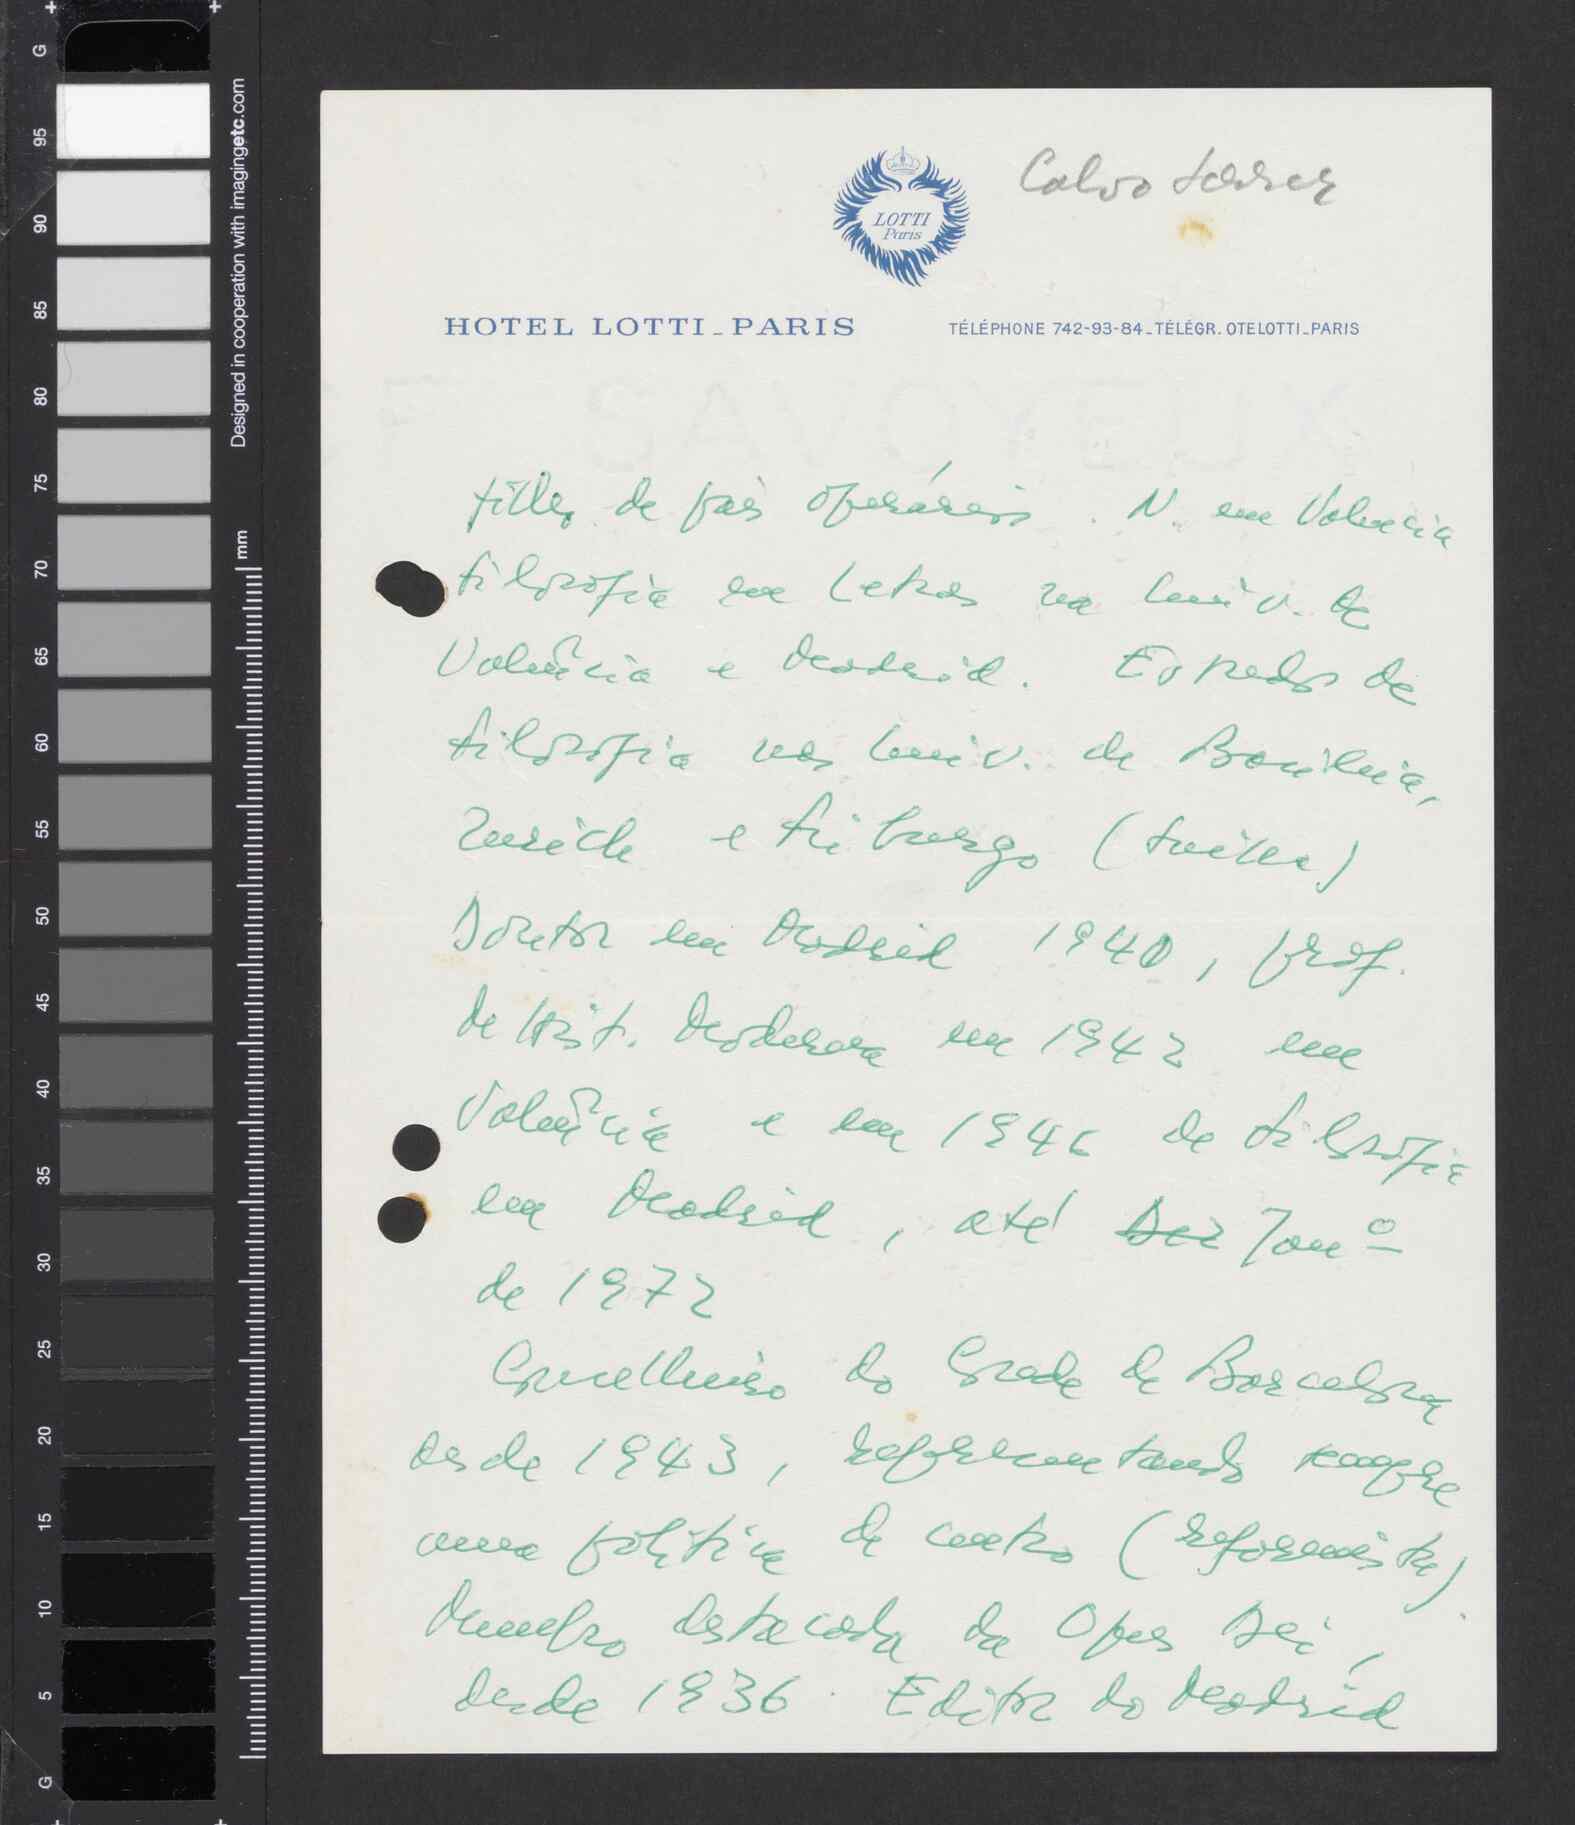 Calvo Serrer
LOTTI
Paris
HOTEL LOTTI_PARIS
TÉLÉPHONE 742-93-84_TÉLÉGR. OTELOTTI_PARIS
Filho de pais operários. N. em Valencia
Filosofia em Letras na Univ. de
Valência e Madrid. Estudos de
Filosofia nas Univ. de Basileia,
Zurich e Friburgo (Suíça)
Doutor em Madrid 1940, prof.
de Hist. Moderna em 1942 em
Valência e em 1946 de Filosofia
em Madrid, até Dez Janº
de 1972
Conselheiro do Conde de Barcelona
desde 1943, representando sempre
uma política de centro (reformista).
Membro destacado da Opus Dei,
desde 1936. Editor do Madrid
G
95
90
85
80
75
70
65
60
55
50
45
40
35
30
25
20
15
10
5
G
Designed in cooperation with imagingetc.com
mm